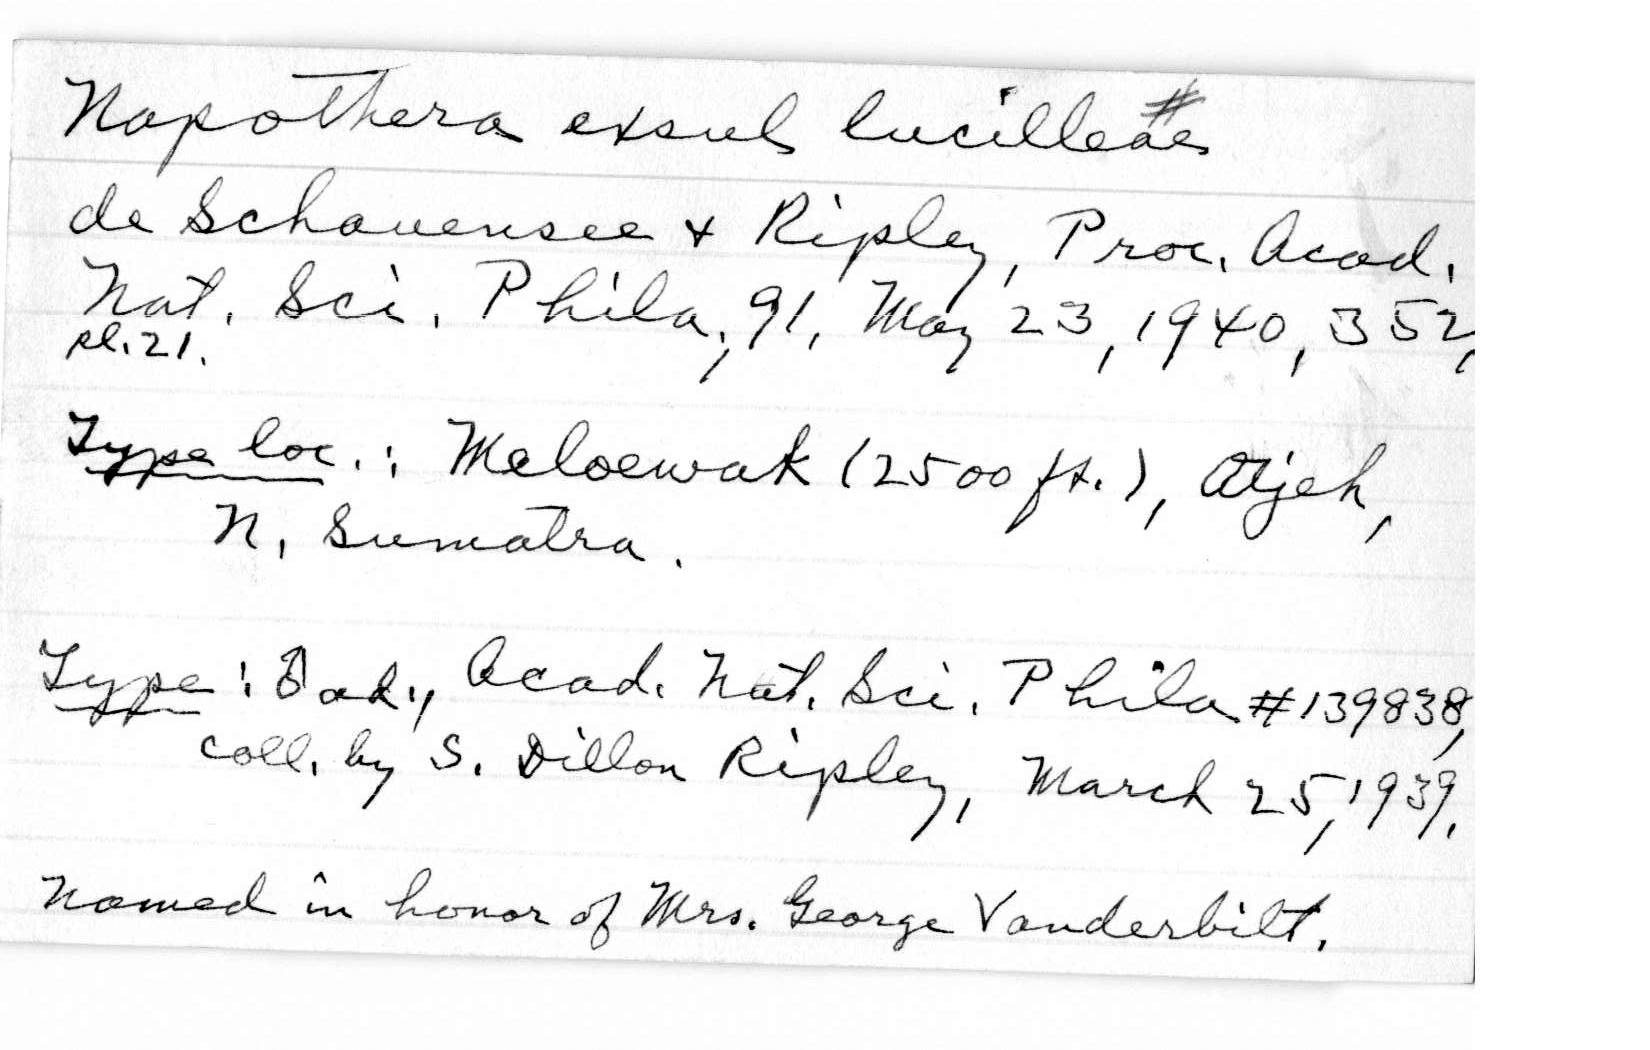 Napothera exsul lucilleae #
de Schauensee & Ripley, Proc. Acad.
Nat. Sci. Phila., 91, May 23, 1940, 352,
pl. 21.
Type loc.: Meloewak (2500 ft.), Atjeh,
N. Sumatra.
Type: ♂ ad., Acad. Nat. Sci. Phila #139838,
coll. by S. Dillon Ripley, March 25, 1939.
Named in honor of Mrs. George Vanderbilt.